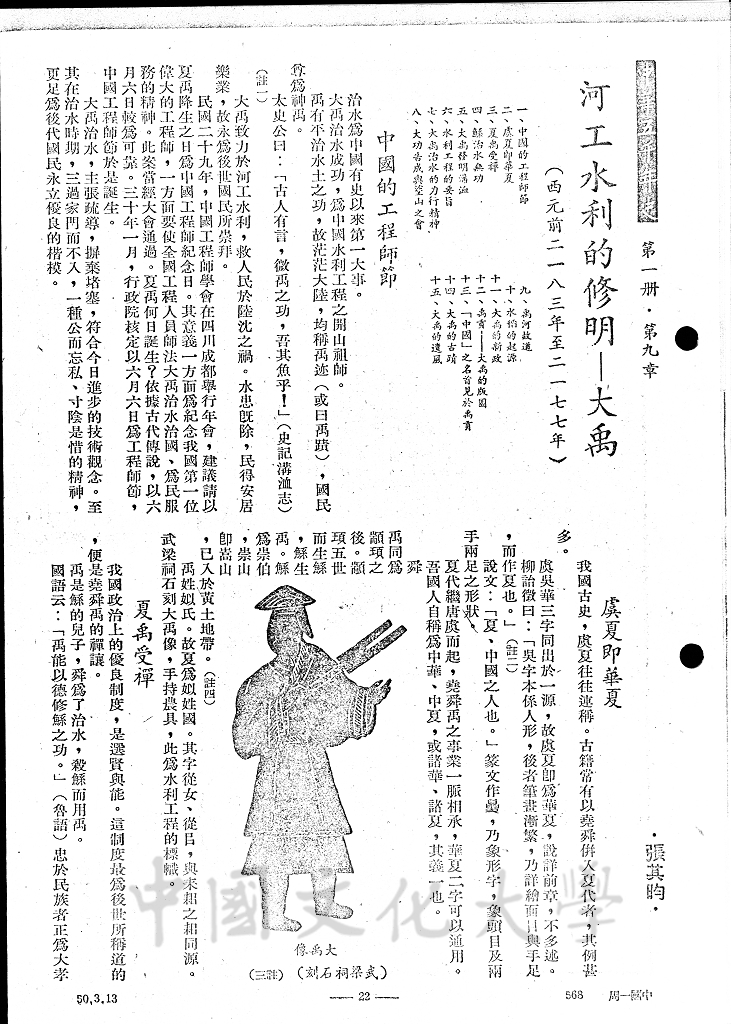 中華五千年史
第一册・第九章
河工水利的修明—大禹
（西元前二一八三年至二一七七年）
・張其昀・
一、中國的工程師節
二、虞夏即華夏
三、夏禹受禪
四、鯀治水無功
五、大禹發明溝洫
六、水利工程的要旨
七、大禹治水的力行精神
八、大功告成與塗山之會
九、禹河故道
十、水的起源
十一、大禹的新政
十二、禹貢——大禹的版圖
十三、「中國」之名首見於禹貢
十四、大禹的古蹟
十五、大禹的遺風
中國的工程師節
治水爲中國有史以來第一大事。
大禹治水成功，爲中國水利工程之開山祖師。
禹有平治水土之功，故茫茫大陸，均稱禹迹（或曰禹蹟），國民
尊爲神禹。
太史公曰：「古人有言，微禹之功，吾其魚乎！」（史記溝洫志）
（註一）
大禹致力於河工水利，救人民於陸沈之禍。水患旣除，民得安居
樂業，故永爲後世國民所崇拜。
民國二十九年，中國工程師學會在四川成都舉行年會，建議請以
夏禹降生之日爲中國工程師紀念日。其意義一方面爲紀念我國第一位
偉大的工程師，一方面要使全國工程人員師法大禹治水治國、爲民服
務的精神。此案當經大會通過。夏禹何日誕生？依據古代傳說，以六
月六日較爲可靠。三十年一月，行政院核定以六月六日爲工程師節，
中國工程師節於是誕生。
大禹治水，主張疏導，摒棄堵塞，符合今日進步的技術觀念。至
其在治水時期，三過家門而不入，一種公而忘私、寸陰是惜的精神，
更足爲後代國民永立優良的楷模。
虞夏即華夏
我國古史，虞夏往往連稱。古籍常有以堯舜併入夏代者，其例甚
多。
虞吳華三字同出於一源，故虞夏卽爲華夏，說詳前章，不多述。
柳詒徵曰：「吳字本係人形，後者筆畫漸繁，乃詳繪面目與手足
，而作夏也。」（註二）
說文：「夏、中國之人也。」篆文作，乃象形字，象頭目及兩
手兩足之形狀。
夏代繼唐虞而起，堯舜禹之事業一脈相承，華夏二字可以通用。
吾國人自稱爲中華、中夏，或諸華、諸夏，其義一也。
舜
禹同爲
顓頊之
後。顓
頊五世
而生鯀
，鯀生
禹。鯀
爲崇伯
，崇山
卽嵩山
，已入於黃土地帶。（註四）
禹姓姒氏。故夏爲姒姓國。其字從女、從㠯，與耒耜之耜同源。
武梁祠石刻大禹像，手持農具，此爲水利工程的標幟。
夏禹受禪
我國政治上的優良制度，是選賢與能。這制度最爲後世所稱道的
，便是堯舜禹的禪讓。
禹是鯀的兒子，舜爲了治水，殺鯀而用禹。
國語云：「禹能以德修鯀之功。」（魯語）忠於民族者正爲大孝
大禹像
（武梁祠石刻）（註三）
中國文化大學
50.3.13
— 22 —
中國一周 568